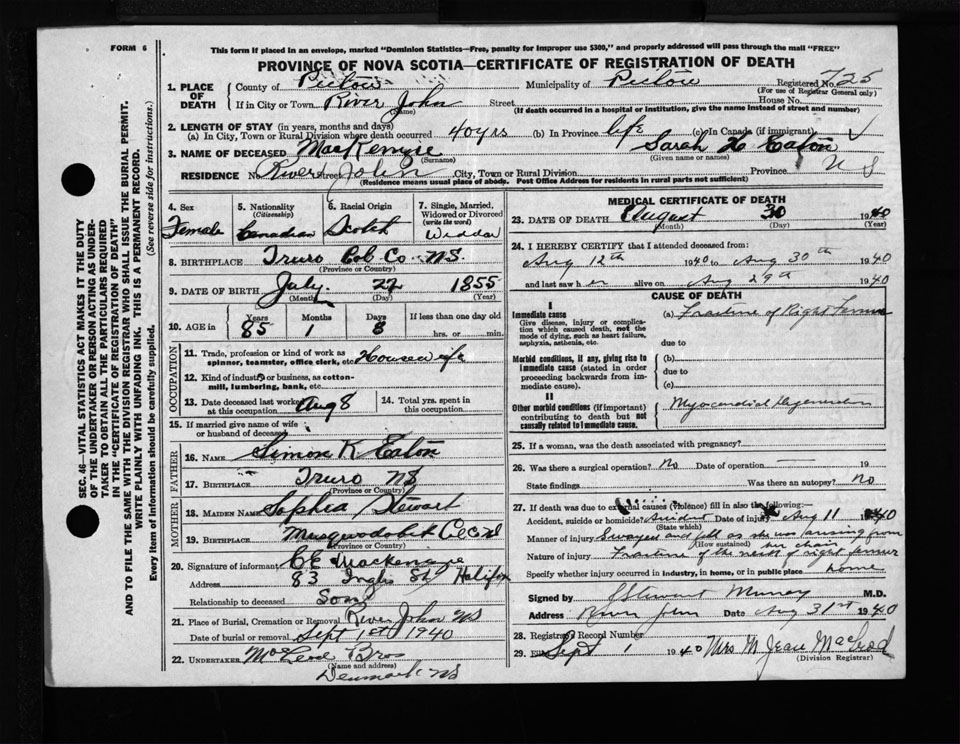 FORM 6
This form if placed in an envelope, marked "Dominion Statistics—Free, penalty for improper use $300," and properly addressed will pass through the mail "FREE"
PROVINCE OF NOVA SCOTIA—CERTIFICATE OF REGISTRATION OF DEATH
SEC. 46—VITAL STATISTICS ACT MAKES IT THE DUTY
OF THE UNDERTAKER OR PERSON ACTING AS UNDER-
TAKER TO OBTAIN ALL THE PARTICULARS REQUIRED
IN THE "CERTIFICATE OF REGISTRATION OF DEATH"
AND TO FILE THE SAME WITH THE DIVISION REGISTRAR WHO SHALL ISSUE THE BURIAL PERMIT.
WRITE PLAINLY WITH UNFADING INK. THIS IS A PERMANENT RECORD.
Every item of information should be carefully supplied. (See reverse side for instructions.)
1. PLACE OF DEATH County of Pictou Municipality of Pictou Registered No. 725
(For use of Registrar General only)
If in City or Town River John Street House No.
(Name) (If death occurred in a hospital or institution, give the name instead of street and number)
2. LENGTH OF STAY (in years, months and days)
(a) In City, Town or Rural Division where death occurred 40 yrs (b) In Province life (c) In Canada (if immigrant)
3. NAME OF DECEASED MacKenzie Sarah H Eaton
(Surname) (Given name or names)
RESIDENCE No. River Street John City, Town or Rural Division Province N S
(Residence means usual place of abode. Post Office Address for residents in rural parts not sufficient)
4. Sex Female
5. Nationality (Citizenship) Canadian
6. Racial Origin Scotch
7. Single, Married, Widowed or Divorced (write the word) Widdow
8. BIRTHPLACE Truro Col Co NS.
(Province or Country)
9. DATE OF BIRTH July 22 1855
(Month) (Day) (Year)
10. AGE in Years 85 Months 1 Days 8 If less than one day old
hrs. or min.
OCCUPATION
11. Trade, profession or kind of work as spinner, teamster, office clerk, etc. Housewife
12. Kind of industry or business, as cotton-mill, lumbering, bank, etc.
13. Date deceased last worked at this occupation Aug 8 14. Total yrs. spent in this occupation
15. If married give name of wife or husband of deceased
FATHER
16. NAME Simon K Eaton
17. BIRTHPLACE Truro NS
(Province or Country)
MOTHER
18. MAIDEN NAME Sophia Stewart
19. BIRTHPLACE Musquodobit
(Province or Country)
20. Signature of informant C E Mackenzie
Address 83 Inglis St Halifax
Relationship to deceased Son
21. Place of Burial, Cremation or Removal River John NS
Date of burial or removal Sept 1st 1940
22. UNDERTAKER McLeod Bros
(Name and address)
Denmark NS
MEDICAL CERTIFICATE OF DEATH
23. DATE OF DEATH August 30 1940
(Month) (Day) (Year)
24. I HEREBY CERTIFY that I attended deceased from:
Aug 12th 1940 to Aug 30th 1940
and last saw her alive on Aug 29th 1940
CAUSE OF DEATH
I
Immediate cause (a) Fracture of Right Femur
Give disease, injury or complication which caused death, not the mode of dying, such as heart failure, asphyxia, asthenia, etc.
due to
Morbid conditions, if any, giving rise to immediate cause (stated in order proceeding backwards from immediate cause). (b)
due to
(c)
II
Other morbid conditions (if important) contributing to death but not causally related to immediate cause. Myocardial Degeneration
25. If a woman, was the death associated with pregnancy?
26. Was there a surgical operation? No Date of operation 19
State findings Was there an autopsy? No
27. If death was due to external causes (violence) fill in also the following:
Accident, suicide or homicide? Accident Date of injury Aug 11 1940
(State which)
Manner of injury Swayed and fell as she was arising from her chair
(How sustained)
Nature of injury Fracture of the neck of right femur
Specify whether injury occurred in industry, in home, or in public place home
Signed by J Stewart Murray M.D.
Address River John Date Aug 31st 1940
28. Registrar's Record Number
29. Filed Sept 1 1940 Mrs M Jean MacLeod
(Division Registrar)